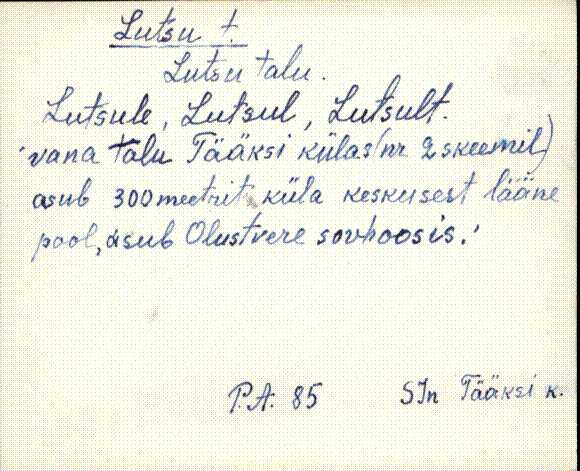 Lutsu t.
Lutsu talu.
Lutsule, Lutsul, Lutsult.
'vana talu Tääksi külas (nr 2 skeemil)
asub 300 meetrit küla keskusest lääne
pool, asub Olustvere sovhoosis.'
P.A. 85 SJn Tääksi k.